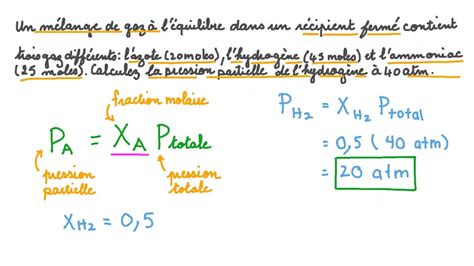 Un mélange de gaz à l'équilibre dans un récipient fermé contient
trois gaz différents : l'azote (20 moles), l'hydrogène (45 moles) et l'ammoniac
(25 moles). Calculez la pression partielle de l'hydrogène à 40 atm.
fraction molaire
P_A = X_A P_totale
pression partielle
pression totale
X_H2 = 0,5
P_H2 = X_H2 P_total
= 0,5 (40 atm)
= 20 atm